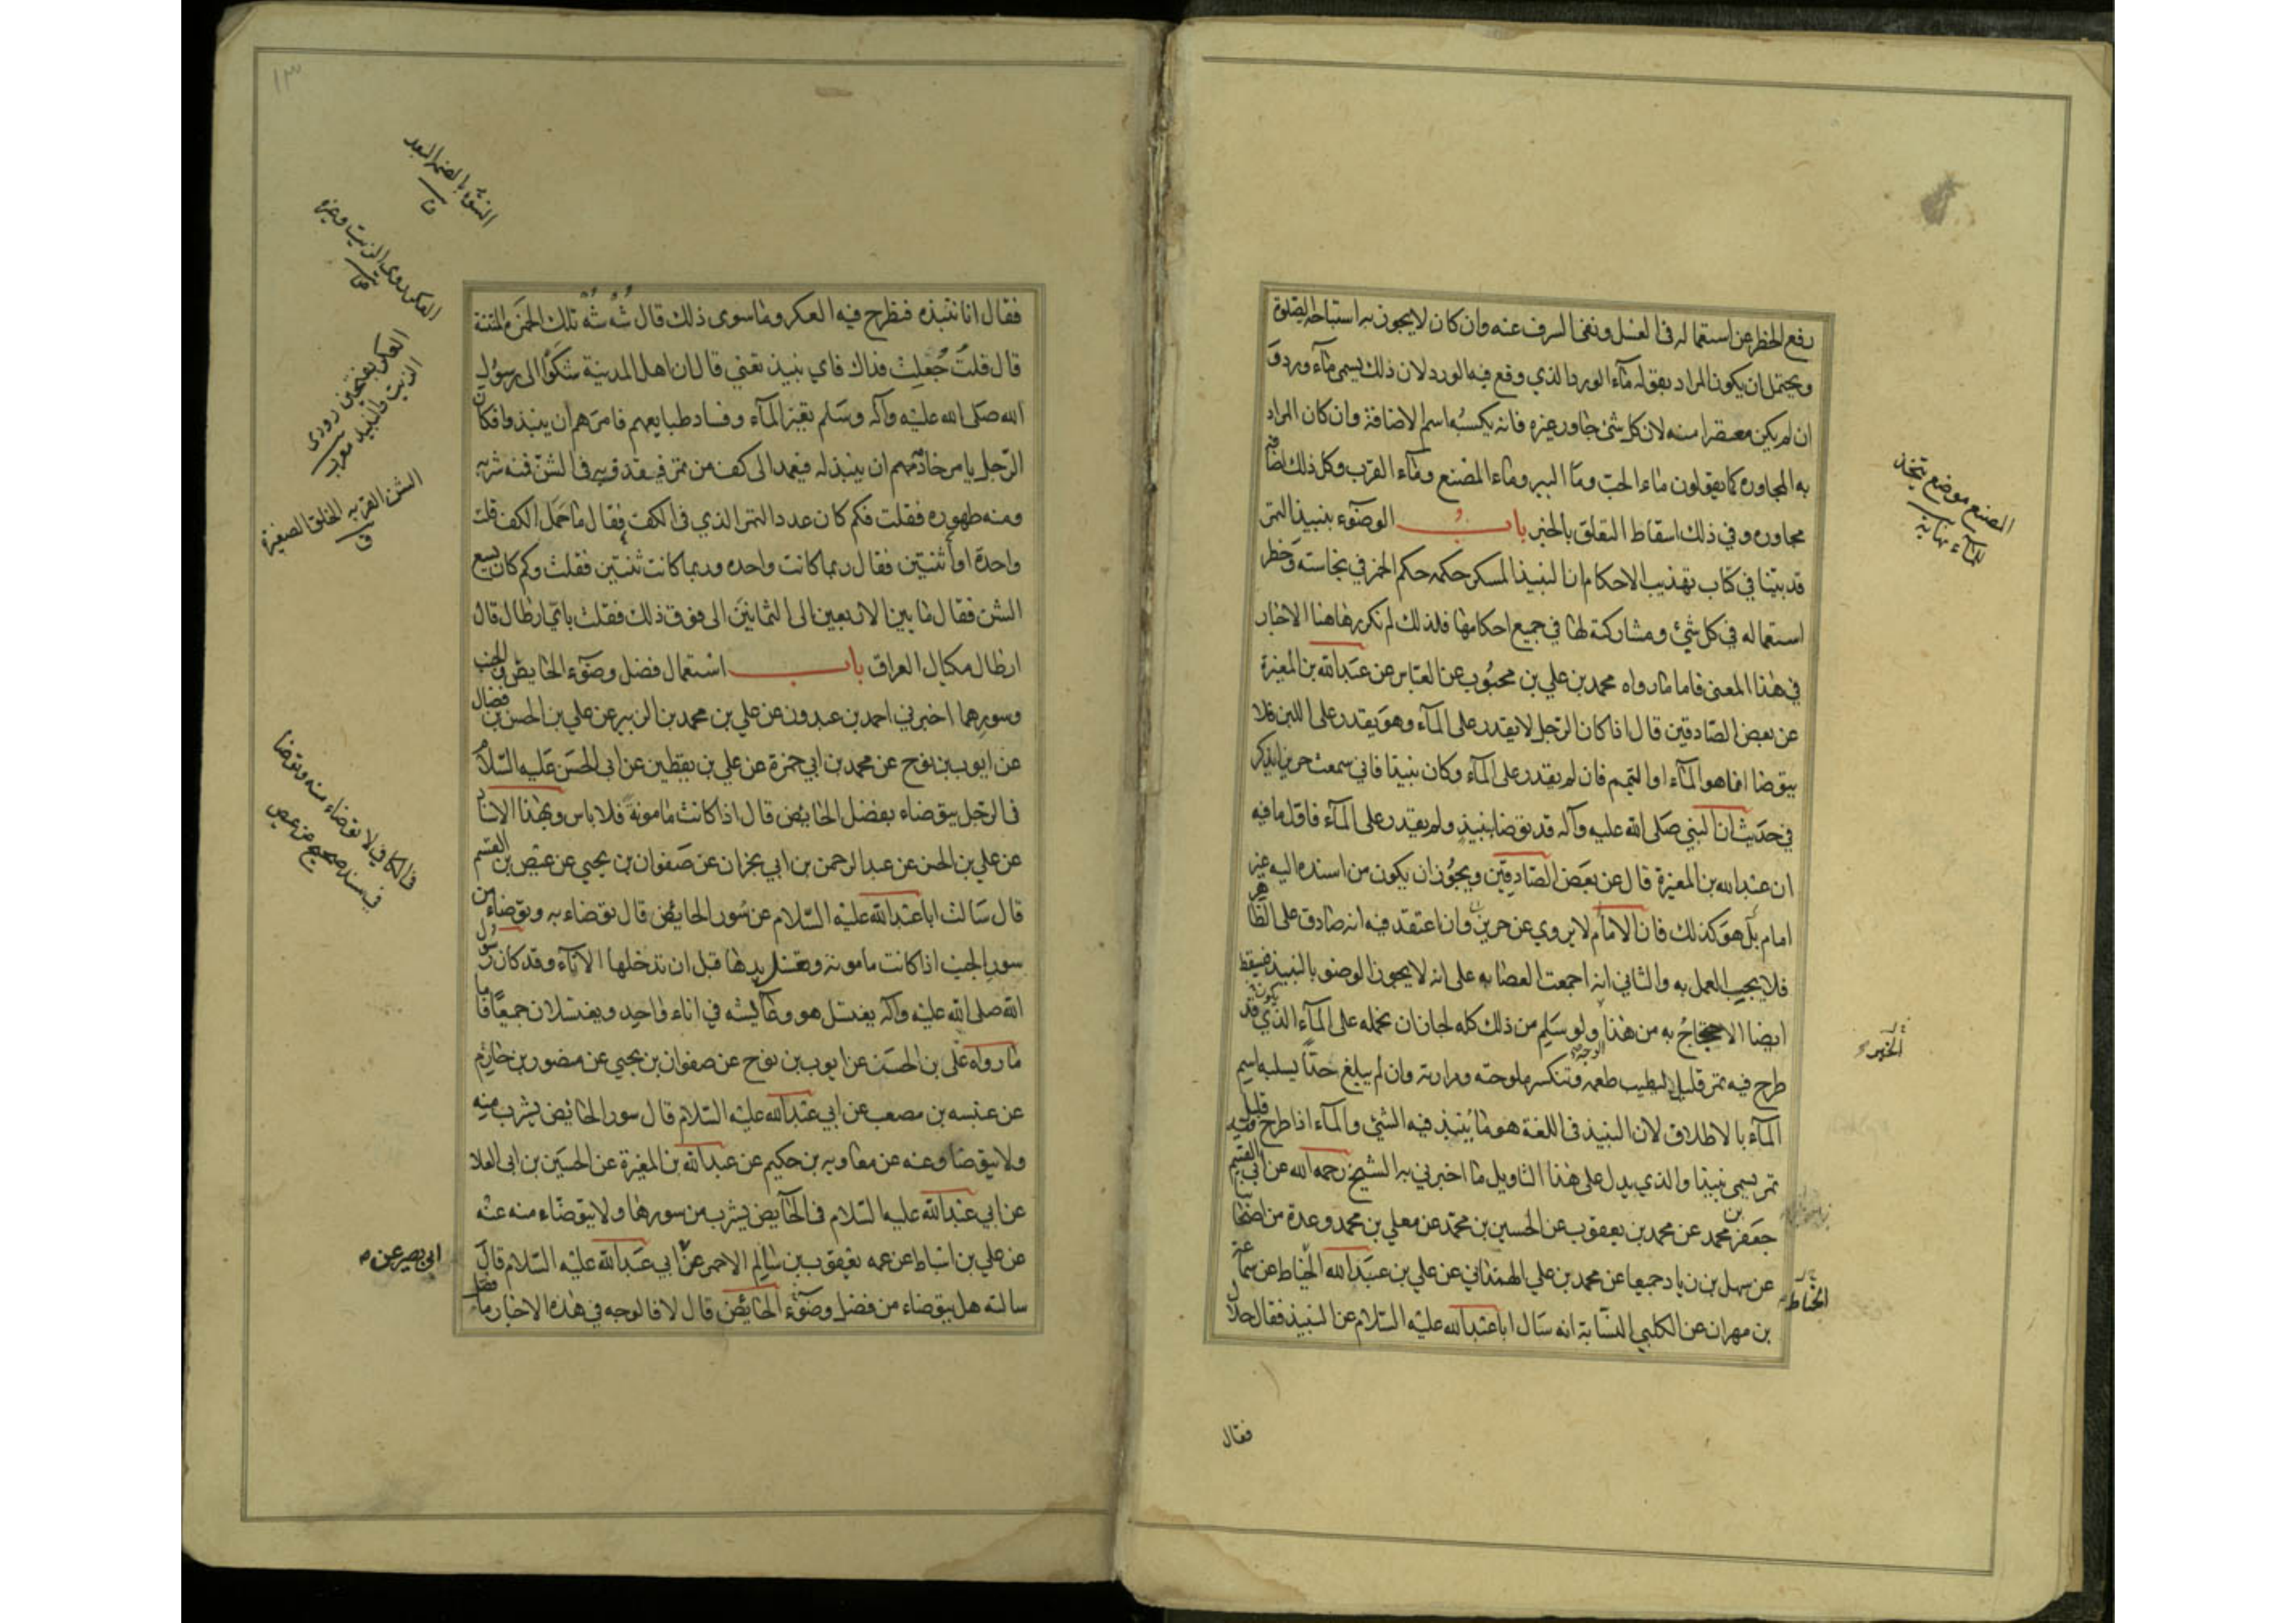 رفع الحظر عن استعماله في الغسل ونفى السرف عنه وان كان لا يجوز به استباحة الصلوة
ويحتمل ان يكون المراد بقوله مآء الورد الذي وقع فيه الورد لان ذلك يسمى مآء ورد و
ان لم يكن معتصرا منه لان كل شئ جاور غيره فانه يكسبه اسم الاضافة وان كان المراد
به المجاوره كما يقولون ماء الحب ومآ البير وماء المصنع ومآء القرب وكل ذلك اضافة
مجاوره وفي ذلك اسقاط التعلق بالخبر باب الوضوء بنبيذ التمر
قد بينا في كتاب تهذيب الاحكام ان النبيذ المسكر حكمه حكم الخمر في نجاسته وحظر
استعماله في كل شئ ومشاركته لها في جميع احكامها فلذلك لم نكررها هنا الاخبار
في هذا المعنى فاما ما رواه محمد بن علي بن محبوب عن العباس عن عبدالله بن المغيرة
عن بعض الصادقين قال اذا كان الرجل لا يقدر على المآء وهو يقدر على اللبن فلا
يتوضا انما هو المآء او التيمم فان لم يقدر على المآء وكان نبيذا فاني سمعت حريزا يذكر
في حديث ان النبي صلى الله عليه وآله قد توضا بنبيذ ولم يقدر على المآء فاقل ما فيه
ان عبدالله بن المغيرة قال عن بعض الصادقين ويجوز ان يكون من اسنده اليه غير
امام بل هو كذلك فان الامام لا يروي عن حريز وان اعتقد فيه انه صادق على الظاهر
فلا يجب العمل به والثاني انه اجمعت العصابه على انه لا يجوز الوضو بالنبيذ فيسقط
ايضا الاحتجاج به من هذا الوجه ولو سلم من ذلك كله لجاز ان نحمله على المآء الذي يكون قد
طرح فيه تمر قليل ليطيب طعمه وتنكسر ملوحته ومرارته وان لم يبلغ حدا يسلبه اسم
المآء بالاطلاق لان النبيذ في اللغة هو ما ينبذ فيه الشئ والمآء اذا طرح فيه قليل
تمر يسمى نبيذا والذي يدل على هذا التاويل ما اخبرني به الشيخ رحمه الله عن ابي القسم
جعفر بن محمد عن محمد بن يعقوب عن الحسين بن محمد عن معلي بن محمد وعدة من اصحابنا
عن سهل بن زياد جميعا عن محمد بن علي الهمداني عن علي بن عبدالله الخياط عن سماعة
بن مهران عن الكلبي النسابة انه سال اباعبدالله عليه السلام عن النبيذ فقال حلال
المصنع موضع يتخذ
للمآء نهاية
الخبر
الحناط
فقال
١٣
فقال انا ننبذه فنطرح فيه العكر وما سوى ذلك قال شُه شُه تلك الخمرة المنتنة
قال قلت جُعلت فداك فاي نبيذ تعني قال ان اهل المدينة شكوا الى رسول
الله صلى الله عليه وآله وسلم تغير المآء وفساد طبايعهم فامرهم ان ينبذوا فكان
الرجل يامر خادمهم ان ينبذ له فيعمد الى كف من تمر فيقذف به في الشن فمنه شربه
ومنه طهوره فقلت فكم كان عدد التمر الذي في الكف فقال ما حمل الكف قلت
واحدة او اثنتين فقال ربما كانت واحده وربما كانت ثنتين فقلت وكم كان يسع
الشن فقال ما بين الاربعين الى الثمانين الى فوق ذلك فقلت باي ارطال قال
ارطال مكيال العراق باب استعمال فضل وضوء الحايض والجنب
وسورهما اخبرني احمد بن عبدون عن علي بن محمد بن الزبير عن علي بن الحسن بن فضال
عن ايوب بن نوح عن محمد بن ابي حمزة عن علي بن يقطين عن ابى الحسن عليه السلام
في الرجل يتوضاء بفضل الحايض قال اذا كانت مامونة فلا باس وبهذا الاسناد
عن علي بن الحسن عن عبد الرحمن بن ابي نجران عن صفوان بن يحيى عن عيص بن القسم
قال سالت اباعبدالله عليه السلام عن سور الحايض قال توضاء به وتوضاء من
سور الجنب اذا كانت مامونة وتغسل يدها قبل ان تدخلها الانآء وقد كان رسول
الله صلى الله عليه وآله يغتسل هو وعايشه في اناء واحد ويغتسلان جميعا فاما
ما رواه علي بن الحسن عن ايوب بن نوح عن صفوان بن يحيى عن منصور بن حازم
عن عنبسه بن مصعب عن ابي عبدالله عليه السلام قال سور الحائض يشرب منه
ولا يتوضا وعنه عن معاويه بن حكيم عن عبدالله بن المغيرة عن الحسين بن ابى العلا
عن ابي عبدالله عليه السلام في الحآيض يشرب من سورها ولا يتوضاء منه عنه
عن علي بن اسباط عن عمه يعقوب بن سالم الاحمر عن ابي عبدالله عليه السلام قال
سالته هل يتوضاء من فضل وضوء الحائض قال لا فالوجه في هذه الاخبار ما فصل
الشوه بالضم البعد
ق
العكر دردى الزيت وغيره
ص
العكر بفتحتين دردى
الزيت والنبيذ مغرب
الشن القربه الخلق الصغيرة
ق
في الكافي لا توضاء منه وتوضا
في سند صحيح عن عيص
ابى بصير عن